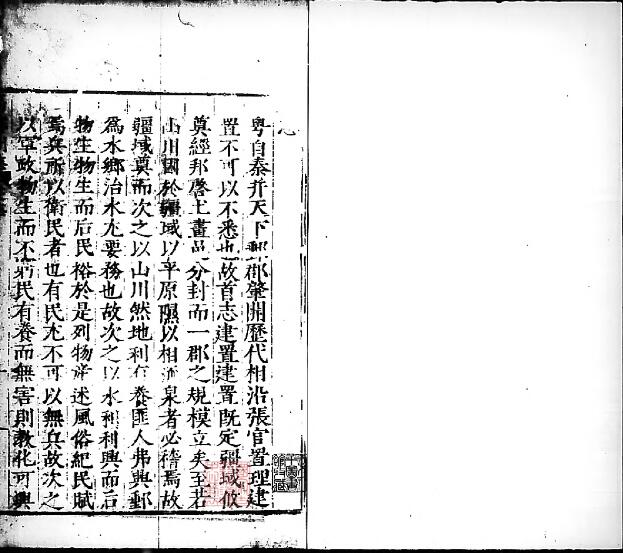 粤自秦并天下鄞郡肇開歷代相沿張官置理建
置不可以不悉也故首志建置建置既定疆域攸
奠經邦啓土畫邑分封而一郡之規模立矣至若
山川囿於疆域以平原隰以相流泉者必稽焉故
疆域奠而次之以山川然地利有養匪人弗興鄞
爲水鄉治水尤要務也故次之以水利利興而后
物生物生而后民裕於是列物產述風俗紀民賦
焉兵所以衛民者也有民尤不可以無兵故次之
以軍政物生而不窮民有養而無害則教化可興